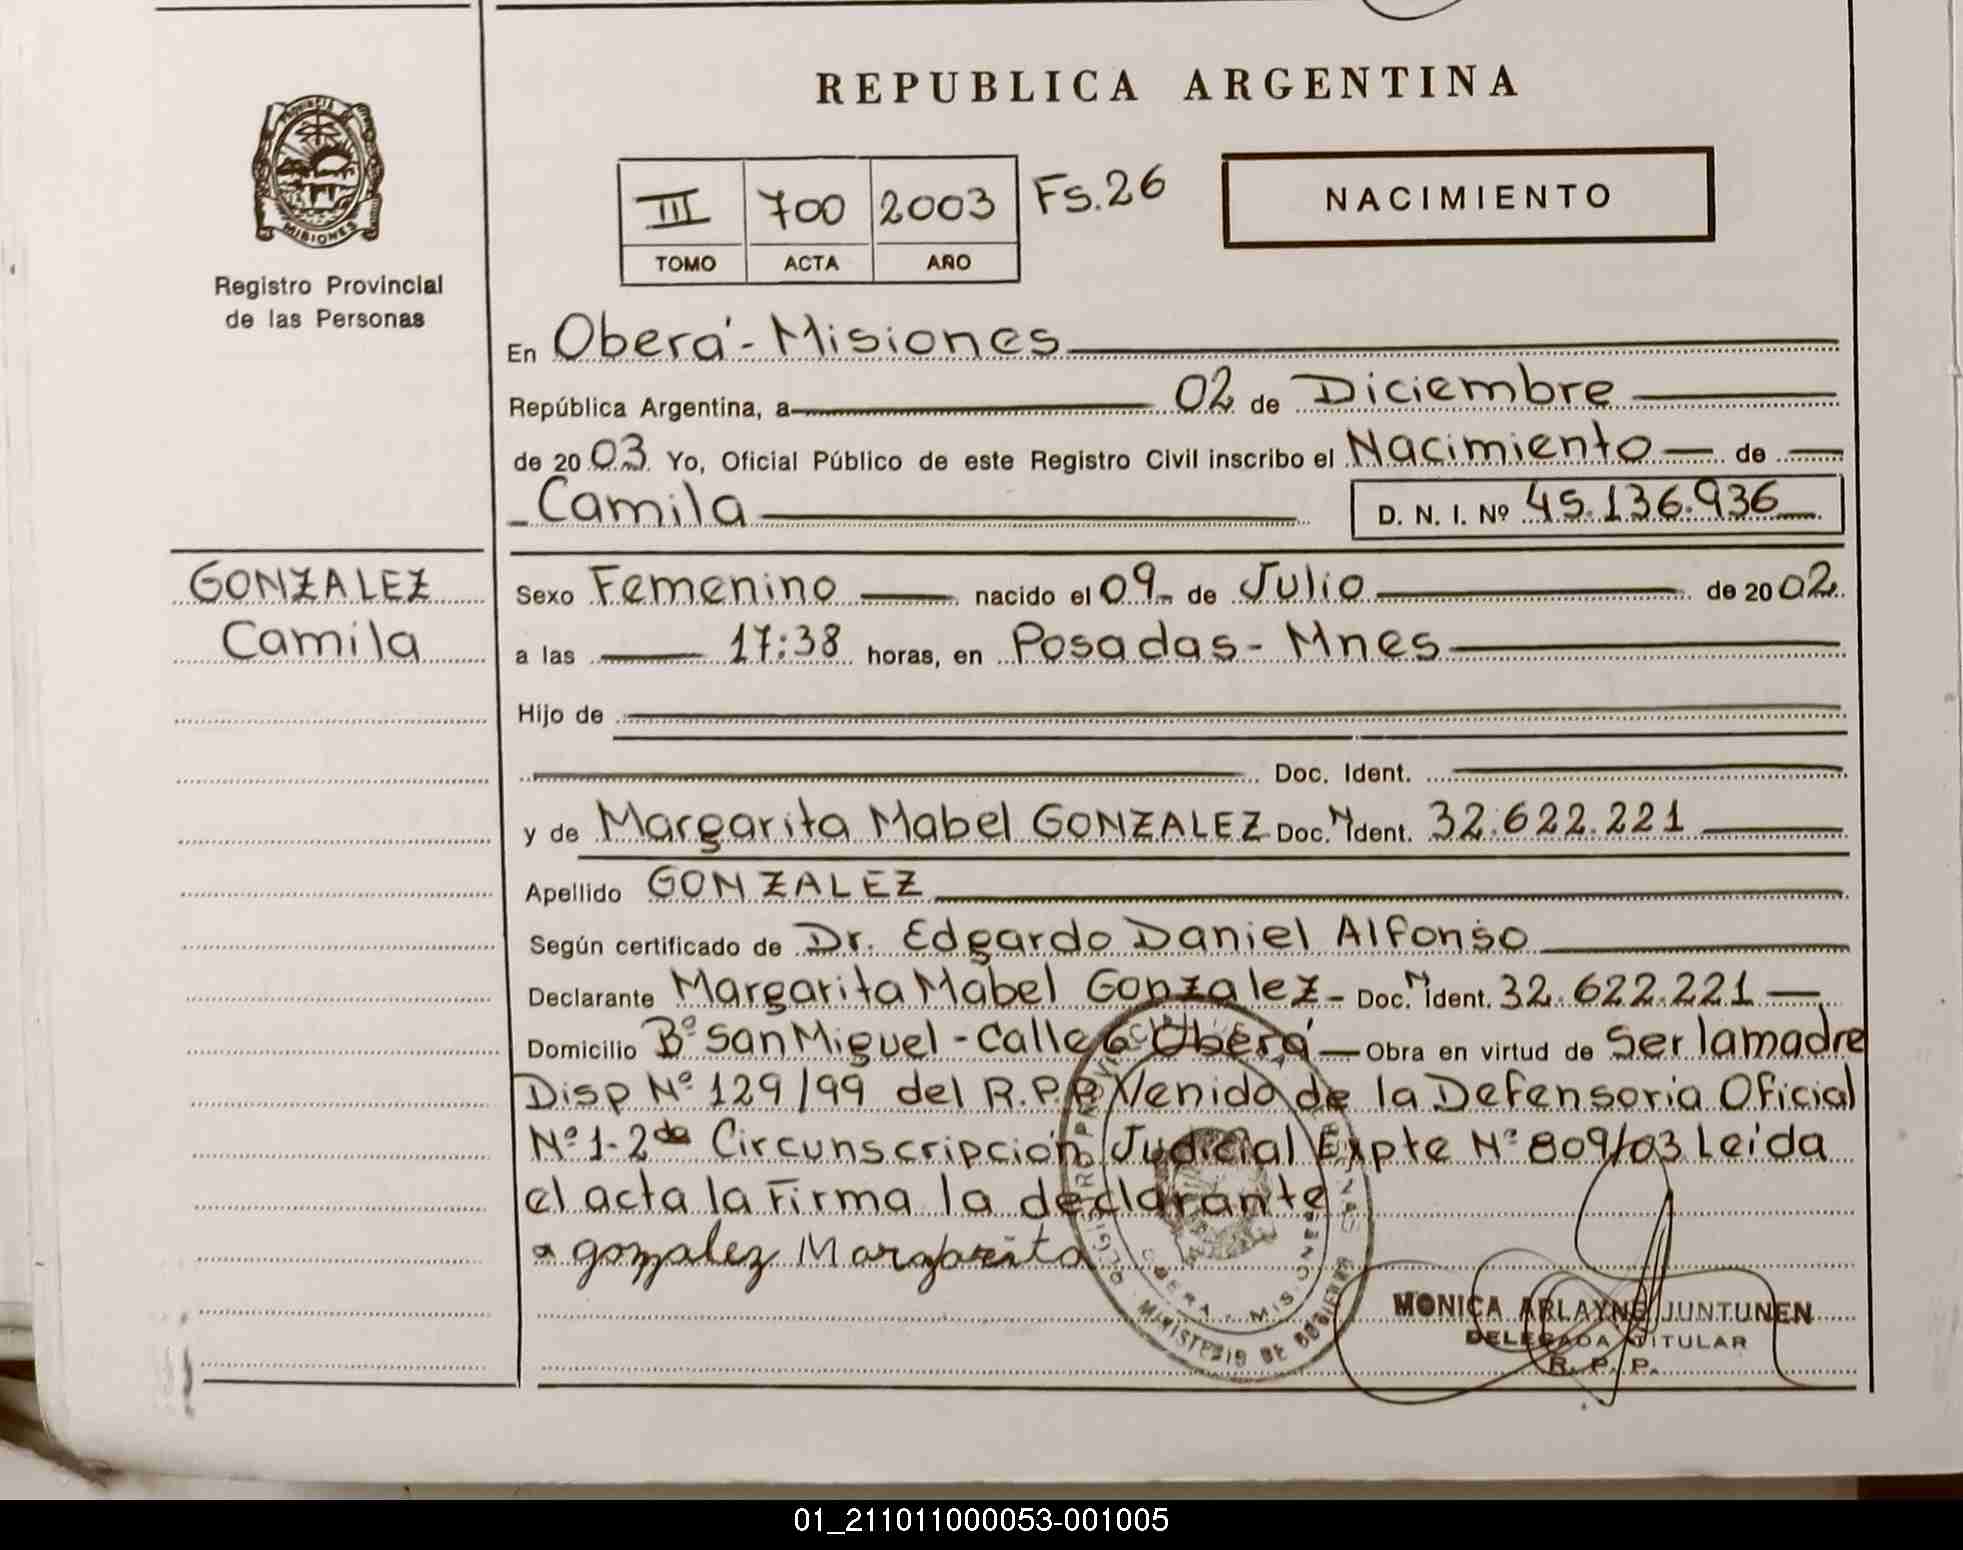 REPUBLICA ARGENTINA
PROVINCIA
MISIONES
Registro Provincial
de las Personas
III 700 2003 Fs.26
TOMO ACTA AÑO
NACIMIENTO
En Oberá - Misiones
República Argentina, a 02 de Diciembre
de 2003 Yo, Oficial Público de este Registro Civil inscribo el Nacimiento de
Camila D. N. I. Nº 45.136.936
GONZALEZ
Camila
Sexo Femenino nacido el 09 de Julio de 2002
a las 17:38 horas, en Posadas - Mnes
Hijo de
Doc. Ident.
y de Margarita Mabel GONZALEZ Doc. N Ident. 32.622.221
Apellido GONZALEZ
Según certificado de Dr. Edgardo Daniel Alfonso
Declarante Margarita Mabel Gonzalez - Doc. N Ident. 32.622.221
Domicilio Bº San Miguel - Calle 6 Oberá Obra en virtud de Ser la madre
Disp Nº 129/99 del R.P.P Venido de la Defensoria Oficial
Nº 1 - 2da Circunscripción Judicial Expte Nº 809/03 Leida
el acta la Firma la declarante
gonzalez Margarita
MINISTERIO DE GOBIERNO
OBERA - MISIONES
MONICA ARLAYNE JUNTUNEN
DELEGADA TITULAR
R. P. P.
01_211011000053-001005